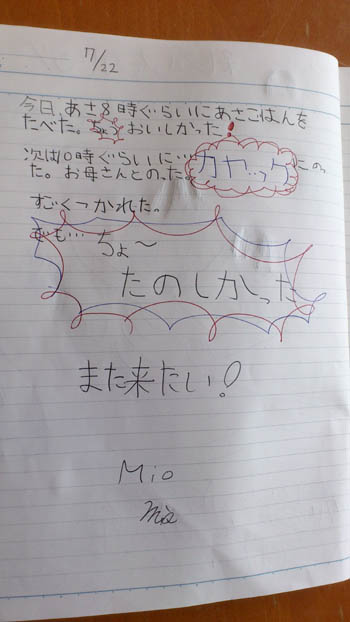 7/22
今日、あさ8時ぐらいにあさごはんを
たべた。ちょうおいしかった!
次は10時ぐらいに…カヤック にのっ
た。お母さんとのった。
すごくつかれた。
でも…ちょ～
たのしかった
また来たい!
Mio
Mio